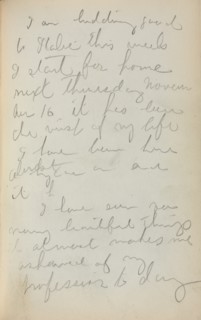 I am bidding good
to Italie this week
I start for home
next thursday Novem
ber 16 it has been
the visit of my life
I have been here
it
I have seen so
many beautiful things
it almost makes me
ashamed of my
Profession to day